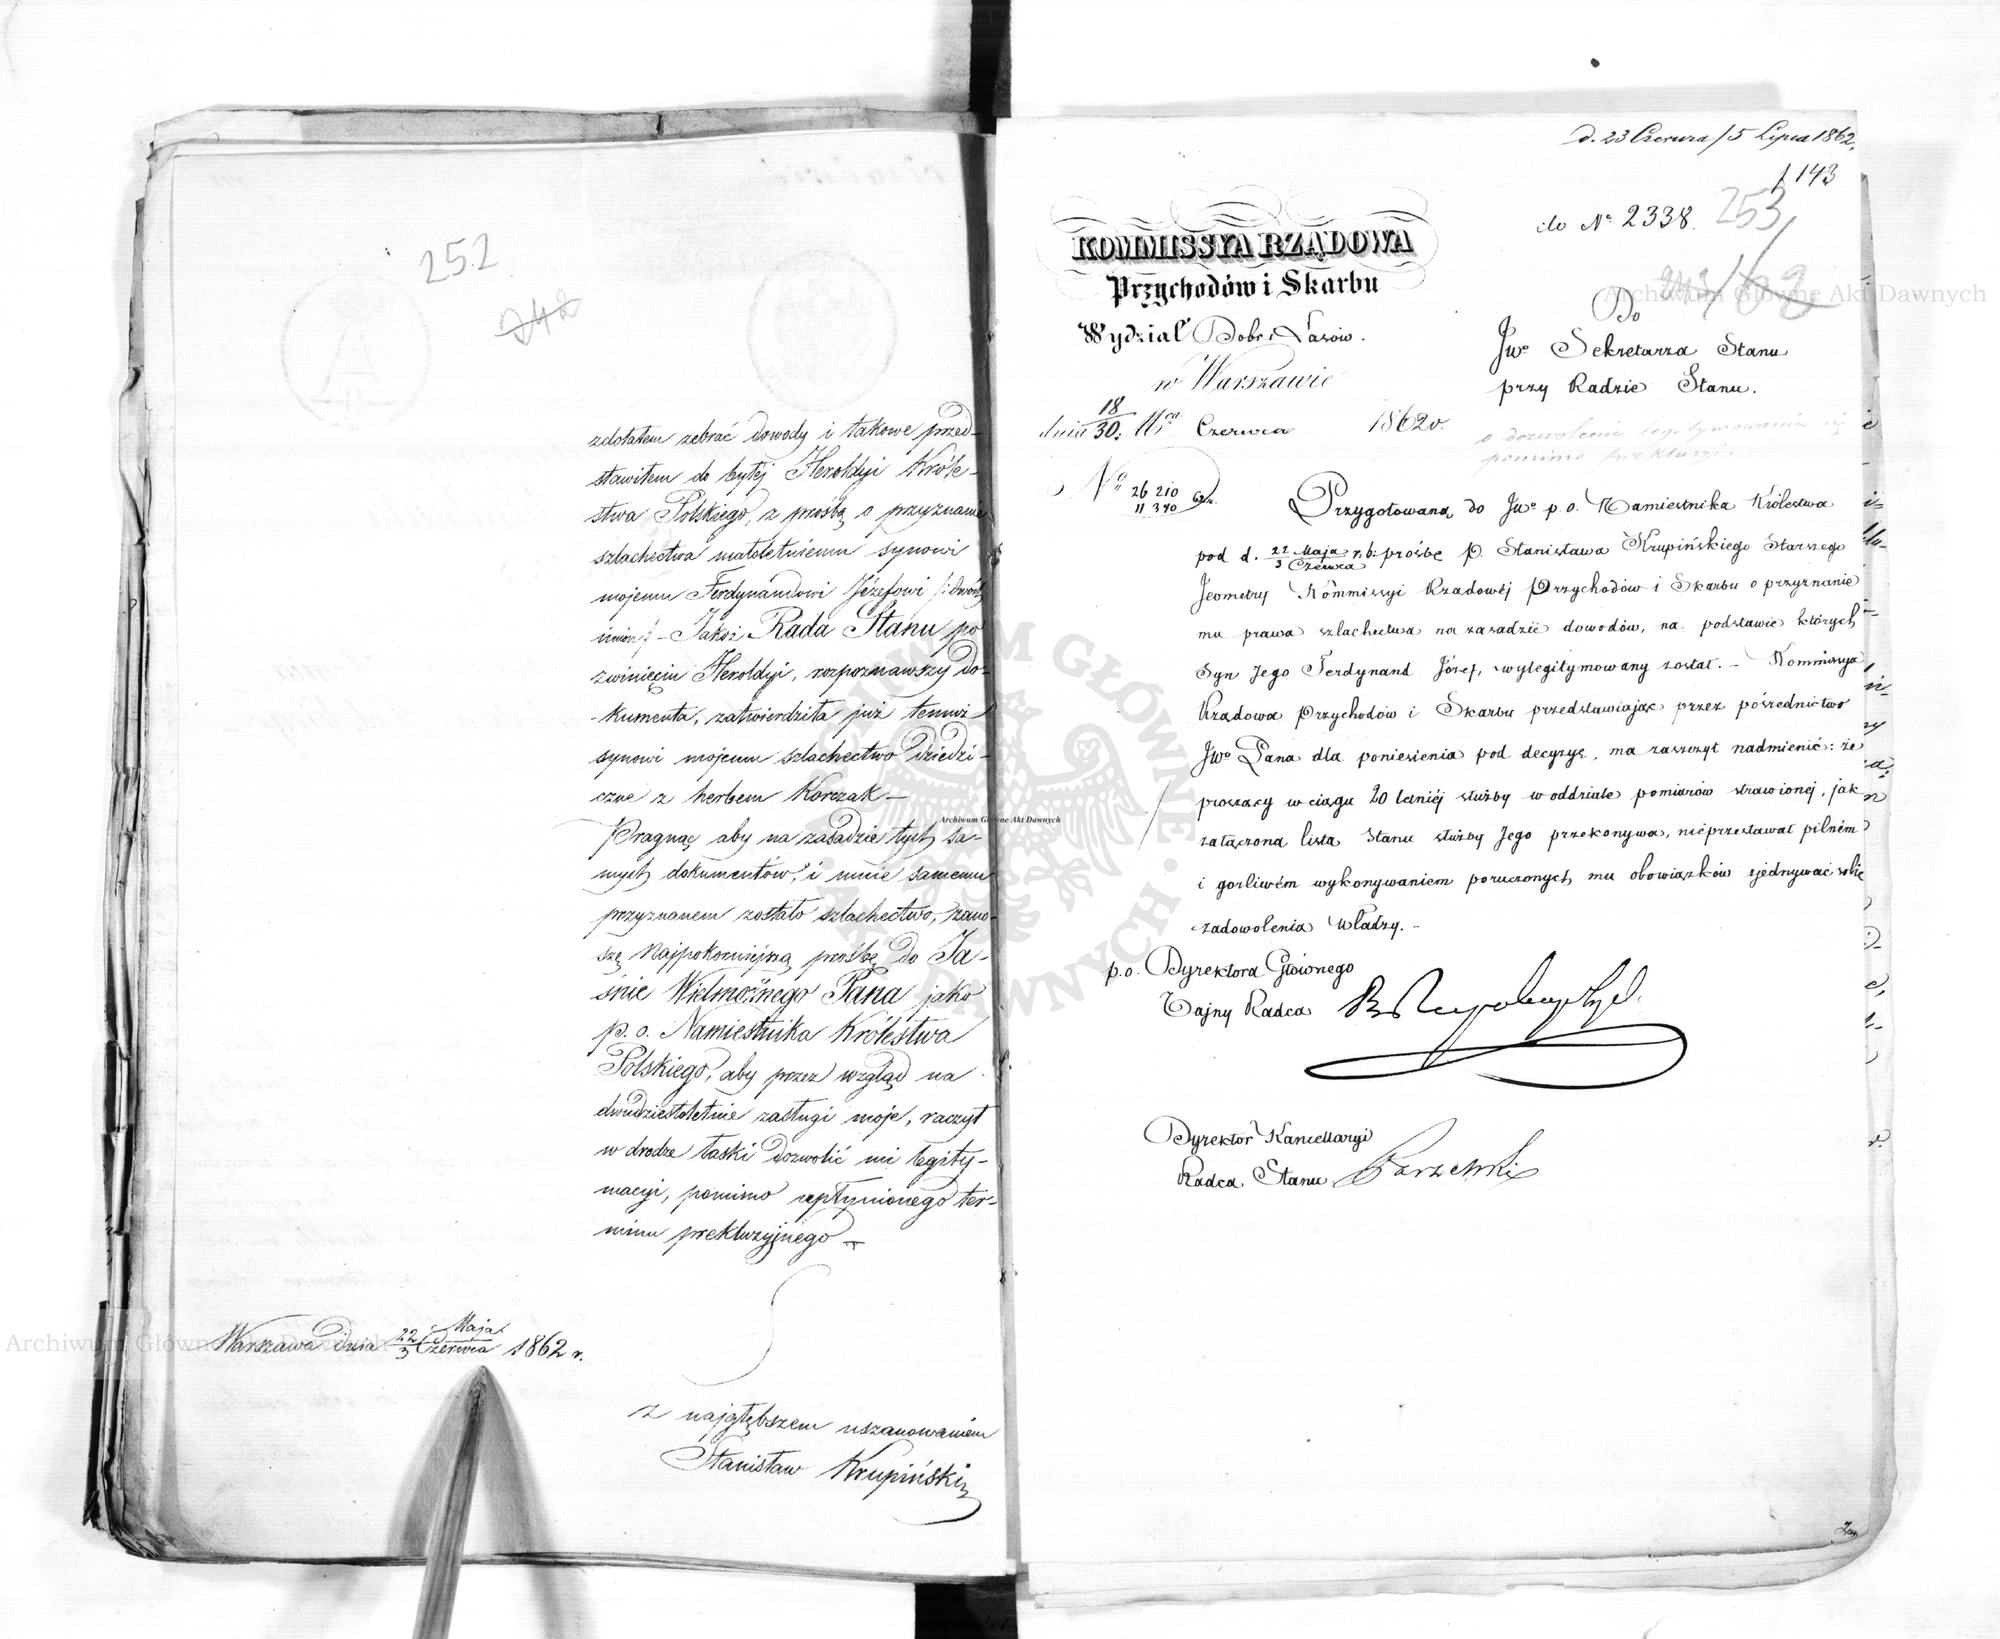 252
242
zdołałem zebrać dowody i takowe przed-
stawiłem do byłéj Heroldyi Króle-
stwa Polskiego, z prośbą o przyznanie
szlachectwa małoletniemu synowi
mojemu Ferdynandowi Józefowi /:dwóch
imion/ - Jakoż Rada Stanu po
zwinięciu Heroldyi, rozpoznawszy do-
kumenta, zatwierdziła już temuż
synowi mojemu szlachectwo dziedzi-
czne z herbem Korczak -
Pragnąc aby na zasadzie tych sa-
mych dokumentów, i mnie samemu
przyznanem zostało szlachectwo, zano-
szę Najpokorniejszą prośbę do Ja-
śnie Wielmożnego Pana jako
p.o. Namiestnika Królestwa
Polskiego, aby przez wzgląd na
dwudziestoletnie zasługi moje, raczył
w drodze łaski dozwolić mi legity-
macyi, pomimo upłynionego ter-
minu prekluzyjnego -
Warszawa dnia 22 Maja / 3 Czerwca 1862 r.
z najgłębszem uszanowaniem
Stanisław Krupiński
d. 23 Czerwca/5 Lipca 1862.
143
do No 2338.
253
KOMMISSYA RZĄDOWA
Przychodów i Skarbu
Wydział Dobr i Lasów.
w Warszawie
dnia 18/30. Mca Czerwca 1862 r.
No 26 210 / 11 340
Do
JWo Sekretarza Stanu
przy Radzie Stanu.
o dozwolenie legitymowania się
pomimo prekluzyi.
Przygotowaną do JWo p.o. Namiestnika Królestwa
pod d. 22 Maja / 3 Czerwca r.b. prośbę P. Stanisława Krupińskiego Starszego
Jeometry Kommissyi Rządowéj Przychodów i Skarbu o przyznanie
mu prawa szlachectwa na zasadzie dowodów, na podstawie których
Syn Jego Ferdynand Józef, wylegitymowany został. - Kommissya
Rządowa Przychodów i Skarbu przedstawiając przez pośrednictwo
JWo Pana dla poniesienia pod decyzyę, ma zaszczyt nadmienić: że
proszący w ciągu 20 letniéj służby w oddziale pomiarów strawionej, jak
załączona lista Stanu służby Jego przekonywa, nieprzestawał pilném
i gorliwém wykonywaniem poruczonych mu obowiązków zjednywać sobie
zadowolenia Władzy. -
p.o. Dyrektora Głównego
Tajny Radca
Dyrektor Kancellaryi
Radca Stanu
Archiwum Główne Akt Dawnych
Archiwum Główne Akt Dawnych
Archiwum Główne Akt Dawnych
ARCHIWUM GŁÓWNE AKT DAWNYCH